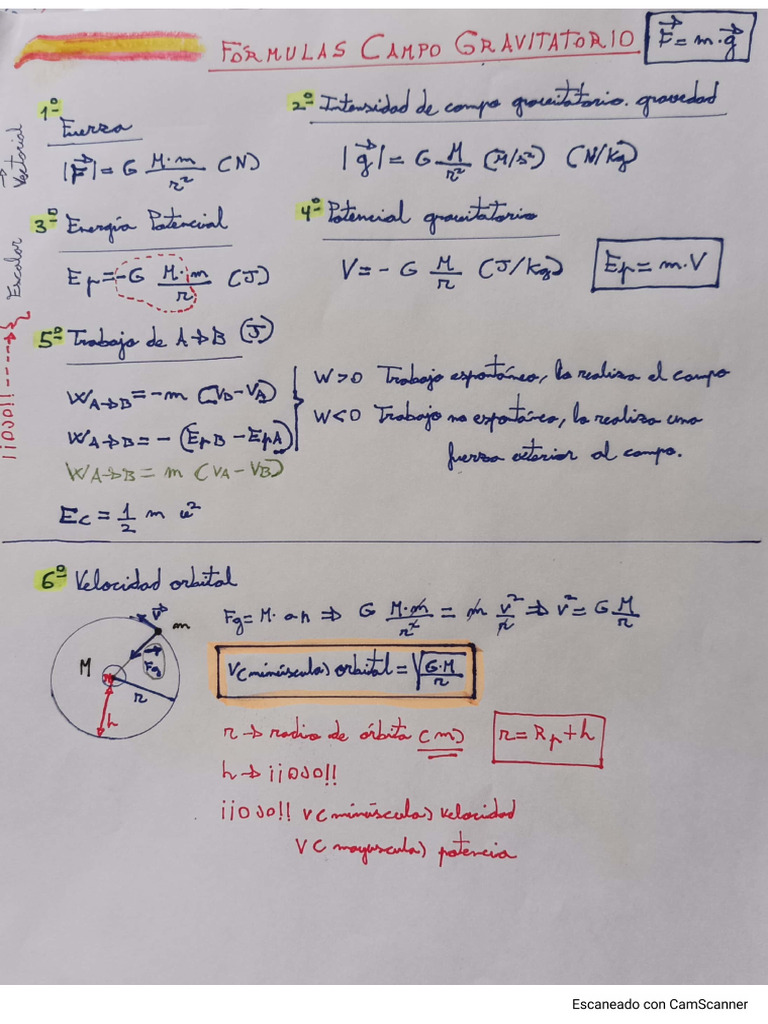 FÓRMULAS CAMPO GRAVITATORIO
F⃗ = m·g⃗
1º Fuerza
|F⃗| = G M·m/r² (N)
2º Intensidad de campo gravitatorio. gravedad
|g⃗| = G M/r² (M/s²) (N/Kg)
Vectorial
3º Energía Potencial
Ep = -G M·m/r (J)
4º Potencial gravitatorio
V = - G M/r (J/Kg)
Ep = m·V
Escalar
¡¡OJO!!
5º Trabajo de A→B (J)
WA→B = -m (VB-VA)
WA→B = - (EpB - EpA)
WA→B = m (VA - VB)
W>0 Trabajo espontáneo, lo realiza el campo
W<0 Trabajo no espontáneo, lo realiza una
fuerza exterior al campo.
Ec = 1/2 m v²
6º Velocidad orbital
Fg = M·an ⇒ G M·m/r² = m v²/r ⇒ v² = G M/r
v⃗
m
F⃗g
M
r
h
V(minúscula) orbital = √G·M/r
r → radio de órbita (m)
r = Rp + h
h → ¡¡OJO!!
¡¡OJO!! V(minúscula) velocidad
V(mayuscula) potencia
Escaneado con CamScanner